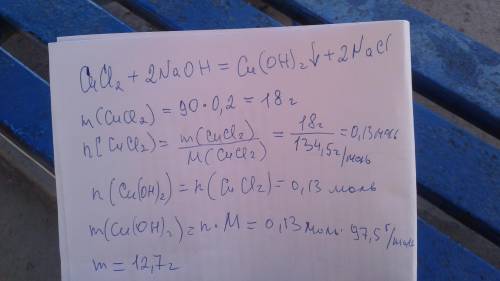 CuCl₂ + 2NaOH = Cu(OH)₂↓ + 2NaCl
m(CuCl₂) = 90·0,2 = 18г
n(CuCl₂) = m(CuCl₂)/M(CuCl₂) = 18г/134,5г/моль = 0,13 моль
n(Cu(OH)₂) = n(CuCl₂) = 0,13 моль
m(Cu(OH)₂) = n·M = 0,13 моль·97,5г/моль
m = 12,7г